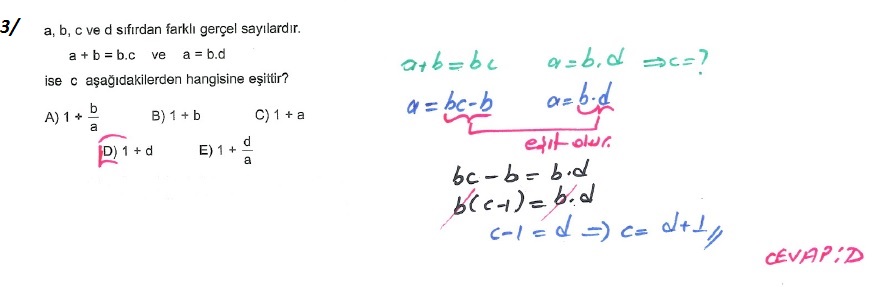 3/ a, b, c ve d sıfırdan farklı gerçel sayılardır.
a + b = b.c ve a = b.d
ise c aşağıdakilerden hangisine eşittir?
A) 1 + b/a B) 1 + b C) 1 + a
D) 1 + d E) 1 + d/a
a+b=bc a=b.d ⇒c=?
a=bc-b a=b.d
eşit olur.
bc-b=b.d
b(c-1)=b.d
c-1=d ⇒ c= d+1//
CEVAP:D